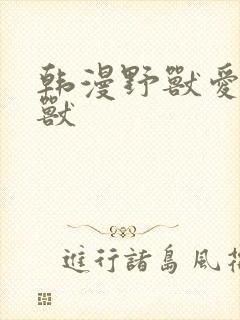 韩漫野獸愛
獸
進行諸島風花